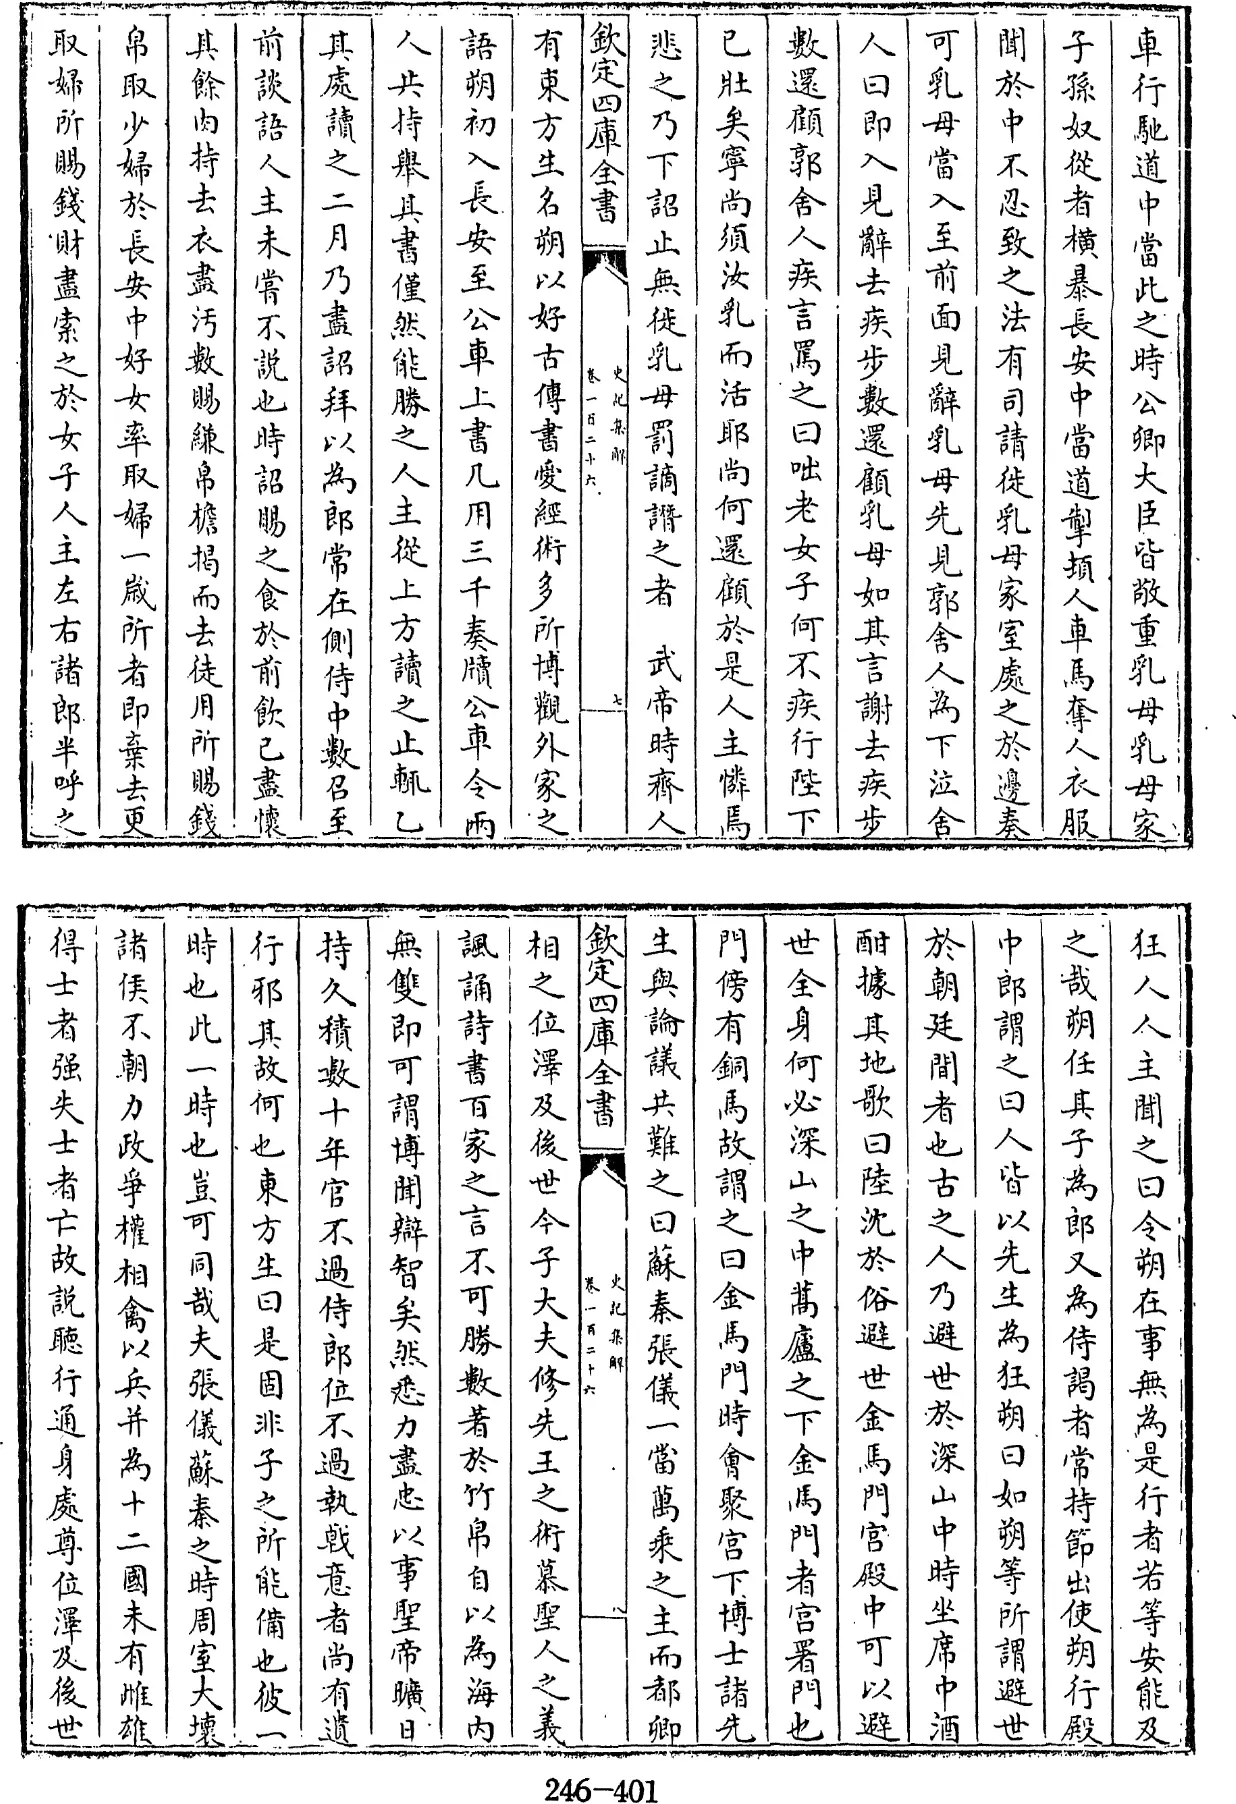 車行馳道中當此之時公卿大臣皆敬重乳母乳母家
子孫奴從者橫暴長安中當道掣頓人車馬奪人衣服
聞於中不忍致之法有司請徙乳母家室處之於邊奏
可乳母當入至前面見辭乳母先見郭舍人為下泣舍
人曰即入見辭去疾步數還顧乳母如其言謝去疾步
數還顧郭舍人疾言罵之曰咄老女子何不疾行陛下
已壯矣寧尚須汝乳而活耶尚何還顧於是人主憐焉
悲之乃下詔止無徙乳母罰謫譖之者　武帝時齊人
欽定四庫全書
史記集解
卷一百二十六
七
有東方生名朔以好古傳書愛經術多所博觀外家之
語朔初入長安至公車上書凡用三千奏牘公車令兩
人共持舉其書僅然能勝之人主從上方讀之止輒乙
其處讀之二月乃盡詔拜以為郎常在側侍中數召至
前談語人主未嘗不說也時詔賜之食於前飲已盡懷
其餘肉持去衣盡污數賜縑帛檐揭而去徒用所賜錢
帛取少婦於長安中好女率取婦一歲所者即棄去更
取婦所賜錢財盡索之於女子人主左右諸郎半呼之
狂人人主聞之曰令朔在事無為是行者若等安能及
之哉朔任其子為郎又為侍謁者常持節出使朔行殿
中郎謂之曰人皆以先生為狂朔曰如朔等所謂避世
於朝廷間者也古之人乃避世於深山中時坐席中酒
酣據其地歌曰陸沈於俗避世金馬門宮殿中可以避
世全身何必深山之中蒿廬之下金馬門者宮署門也
門傍有銅馬故謂之曰金馬門時會聚宮下博士諸先
生與論議共難之曰蘇秦張儀一當萬乘之主而都卿
欽定四庫全書
史記集解
卷一百二十六
八
相之位澤及後世今子大夫修先王之術慕聖人之義
諷誦詩書百家之言不可勝數著於竹帛自以為海內
無雙即可謂博聞辯智矣然悉力盡忠以事聖帝曠日
持久積數十年官不過侍郎位不過執戟意者尚有遺
行邪其故何也東方生曰是固非子之所能備也彼一
時也此一時也豈可同哉夫張儀蘇秦之時周室大壞
諸侯不朝力政爭權相禽以兵并為十二國未有雌雄
得士者强失士者亡故說聽行通身處尊位澤及後世
246-401